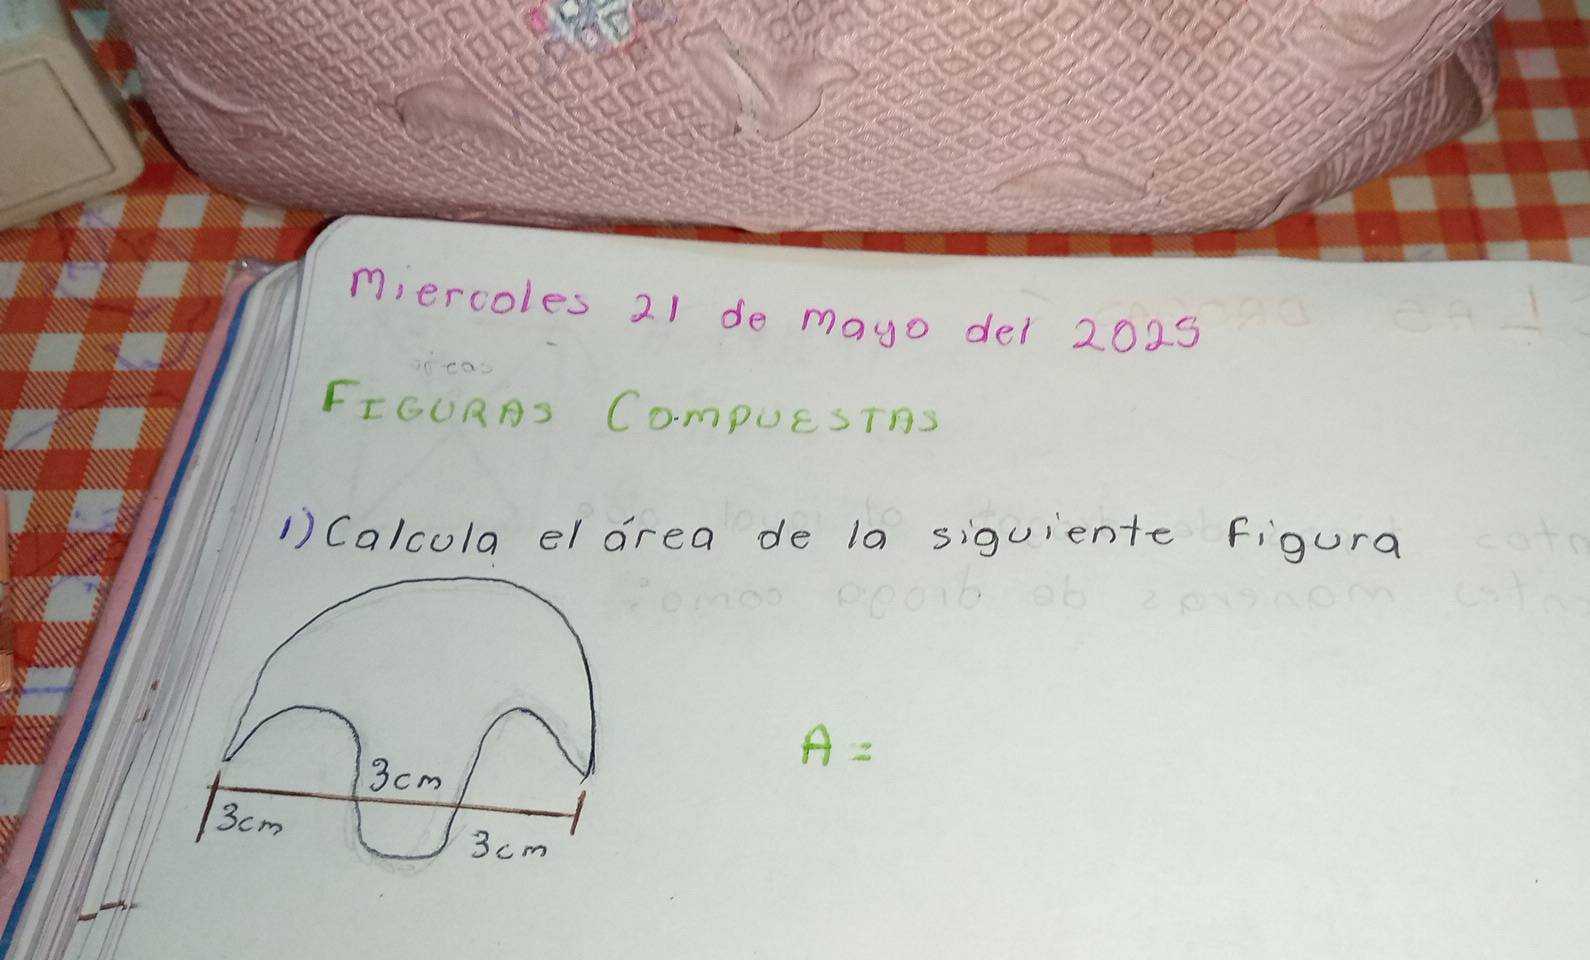 Miercoles 21 de mayo del 2025
FIGURAS COMPUESTAS
1) Calcula el área de la siguiente figura
3cm
3cm
3cm
A =